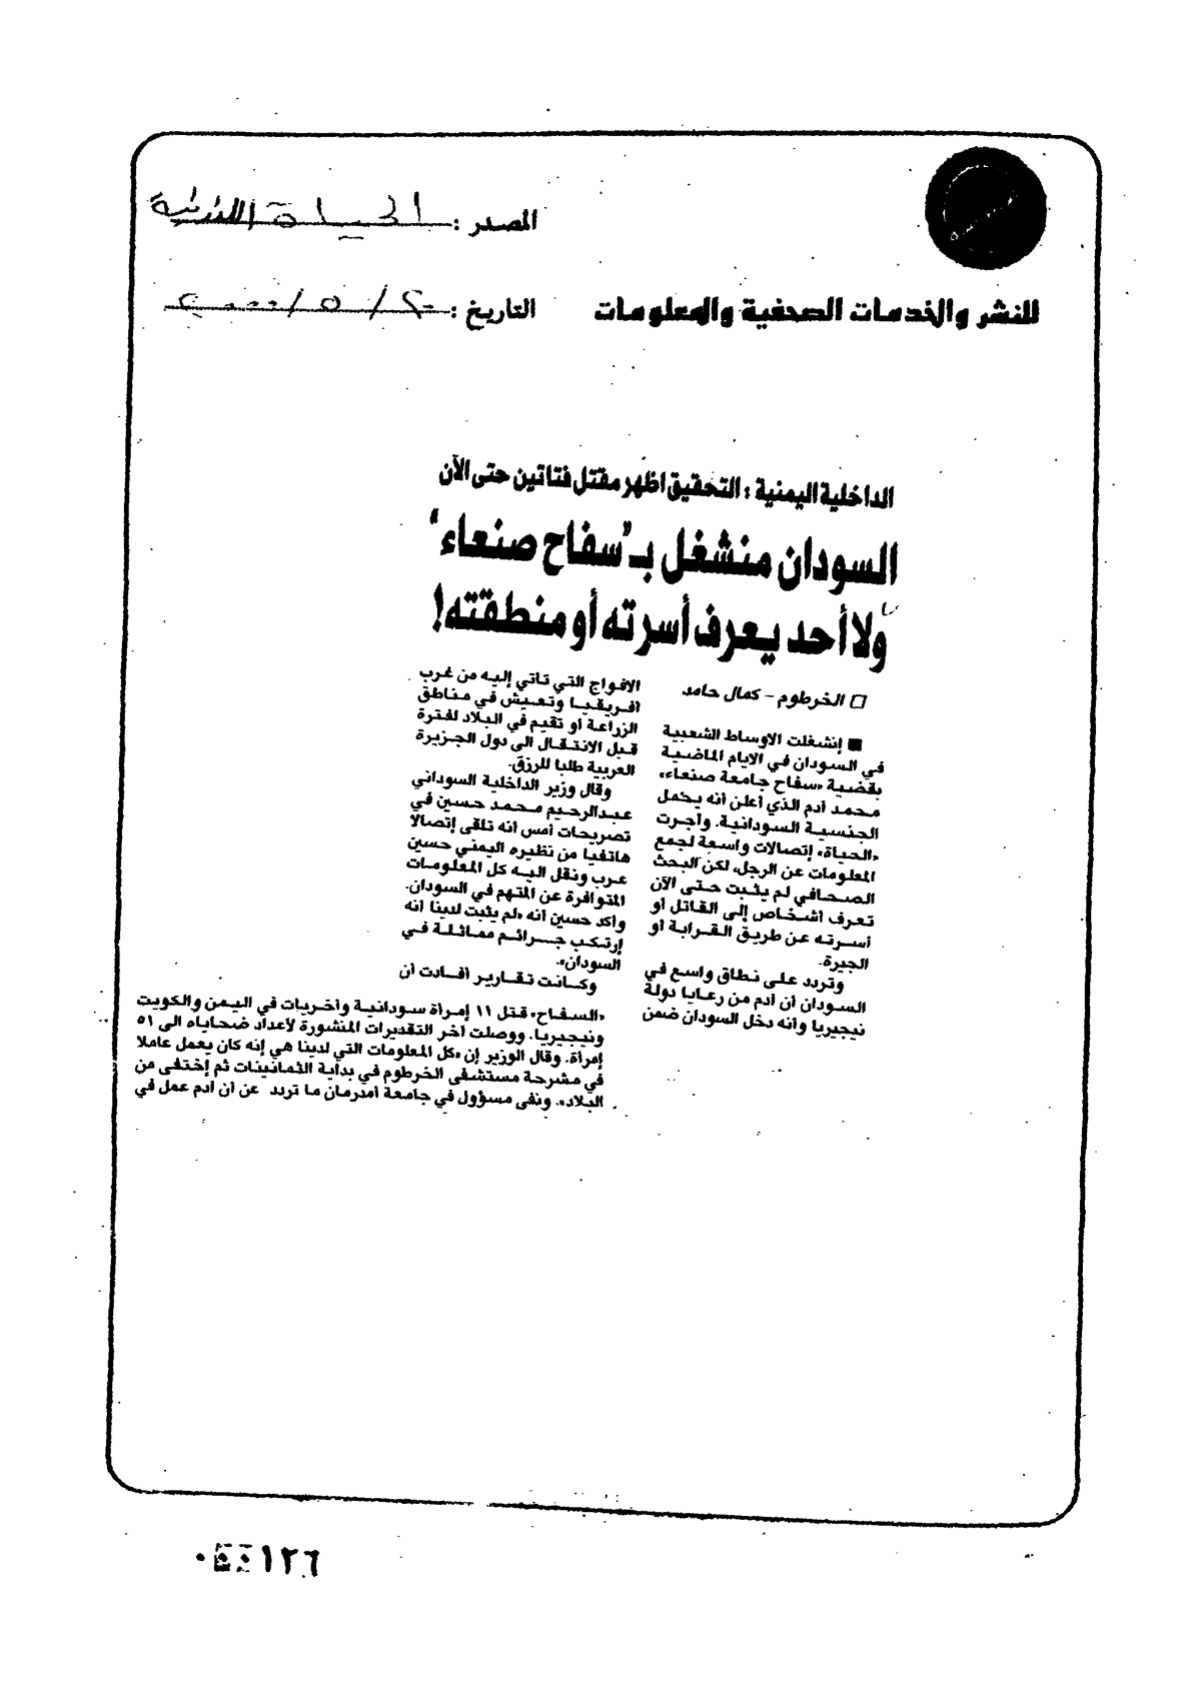 المصدر : الحياة اللندنية
للنشر والخدمات الصحفية والمعلومات
التاريخ : ٢٠ / ٥ / ٢٠٠٠
الداخلية اليمنية : التحقيق اظهر مقتل فتاتين حتى الآن
السودان منشغل بـ"سفاح صنعاء"
ولا أحد يعرف أسرته أو منطقته!
□ الخرطوم - كمال حامد
■ إنشغلت الاوساط الشعبية
في السودان في الايام الماضية
بقضية «سفاح جامعة صنعاء»
محمد آدم الذي أعلن أنه يحمل
الجنسية السودانية. وأجرت
«الحياة» إتصالات واسعة لجمع
المعلومات عن الرجل، لكن البحث
الصحافي لم يثبت حتى الآن
تعرف أشخاص إلى القاتل أو
أسرته عن طريق القرابة أو
الجيرة.
وتردد على نطاق واسع في
السودان أن آدم من رعايا دولة
نيجيريا وأنه دخل السودان ضمن
الافواج التي تاتي إليه من غرب
افريقيا وتعيش في مناطق
الزراعة أو تقيم في البلاد لفترة
قبل الانتقال الى دول الجزيرة
العربية طلبا للرزق.
وقال وزير الداخلية السوداني
عبدالرحيم محمد حسين في
تصريحات أمس أنه تلقى إتصالا
هاتفيا من نظيره اليمني حسين
عرب ونقل اليه كل المعلومات
المتوافرة عن المتهم في السودان.
وأكد حسين أنه «لم يثبت لدينا أنه
إرتكب جرائم مماثلة في
السودان».
وكانت تقارير أفادت أن
«السفاح» قتل ١١ إمرأة سودانية وأخريات في اليمن والكويت
ونيجيريا. ووصلت آخر التقديرات المنشورة لأعداد ضحاياه الى ٥١
إمرأة. وقال الوزير إن «كل المعلومات التي لدينا هي إنه كان يعمل عاملا
في مشرحة مستشفى الخرطوم في بداية الثمانينات ثم إختفى من
البلاد». ونفى مسؤول في جامعة أمدرمان ما تردد عن أن آدم عمل في